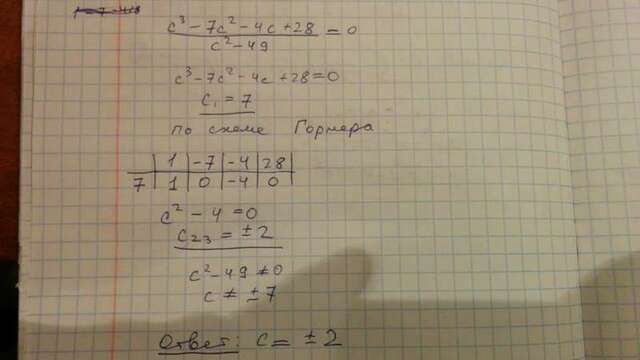 c³ - 7c² - 4c + 28 = 0
c² - 49
c³ - 7c² - 4c + 28 = 0
c₁ = 7
по схеме Горнера
1 | -7 | -4 | 28
7 | 1 | 0 | -4 | 0
c² - 4 = 0
c₂₃ = ± 2
c² - 49 ≠ 0
c ≠ ± 7
Ответ: c = ± 2